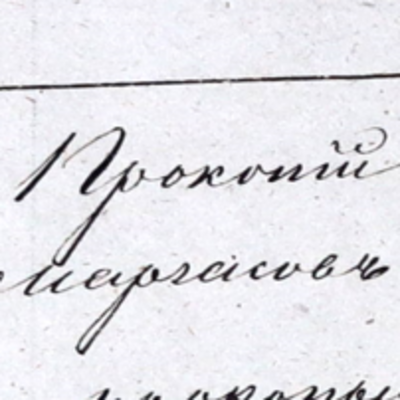 Прокопій
Маргасовъ